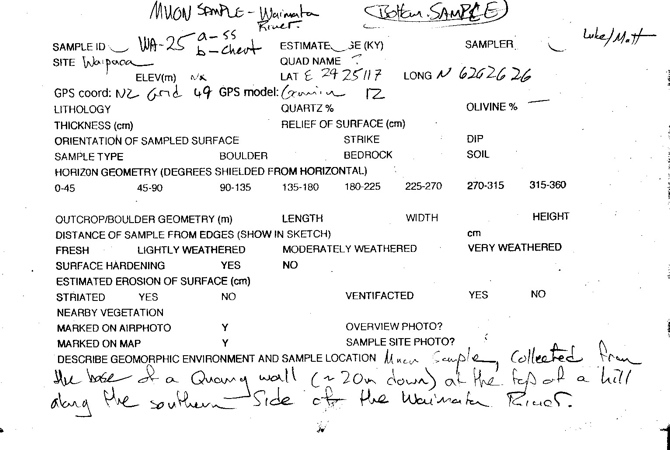 MUON SAMPLE - Waimata River. (Bottom SAMPLE)
SAMPLE ID WA-25 a-ss b-chert ESTIMATE GE (KY) SAMPLER Luke/Matt
SITE Waipaoa QUAD NAME ?
ELEV(m) N/K LAT E 2925117 LONG N 6262626
GPS coord: NZ Grid 49 GPS model: Garmin 12
LITHOLOGY QUARTZ % OLIVINE % —
THICKNESS (cm) RELIEF OF SURFACE (cm)
ORIENTATION OF SAMPLED SURFACE STRIKE DIP
SAMPLE TYPE BOULDER BEDROCK SOIL
HORIZON GEOMETRY (DEGREES SHIELDED FROM HORIZONTAL)
0-45 45-90 90-135 135-180 180-225 225-270 270-315 315-360
OUTCROP/BOULDER GEOMETRY (m) LENGTH WIDTH HEIGHT
DISTANCE OF SAMPLE FROM EDGES (SHOW IN SKETCH) cm
FRESH LIGHTLY WEATHERED MODERATELY WEATHERED VERY WEATHERED
SURFACE HARDENING YES NO
ESTIMATED EROSION OF SURFACE (cm)
STRIATED YES NO VENTIFACTED YES NO
NEARBY VEGETATION
MARKED ON AIRPHOTO Y OVERVIEW PHOTO?
MARKED ON MAP Y SAMPLE SITE PHOTO?
DESCRIBE GEOMORPHIC ENVIRONMENT AND SAMPLE LOCATION Muon Sample, Collected from
the base of a Quarry wall (~20m down) at the top of a hill
along the southern Side of the Waimata River.